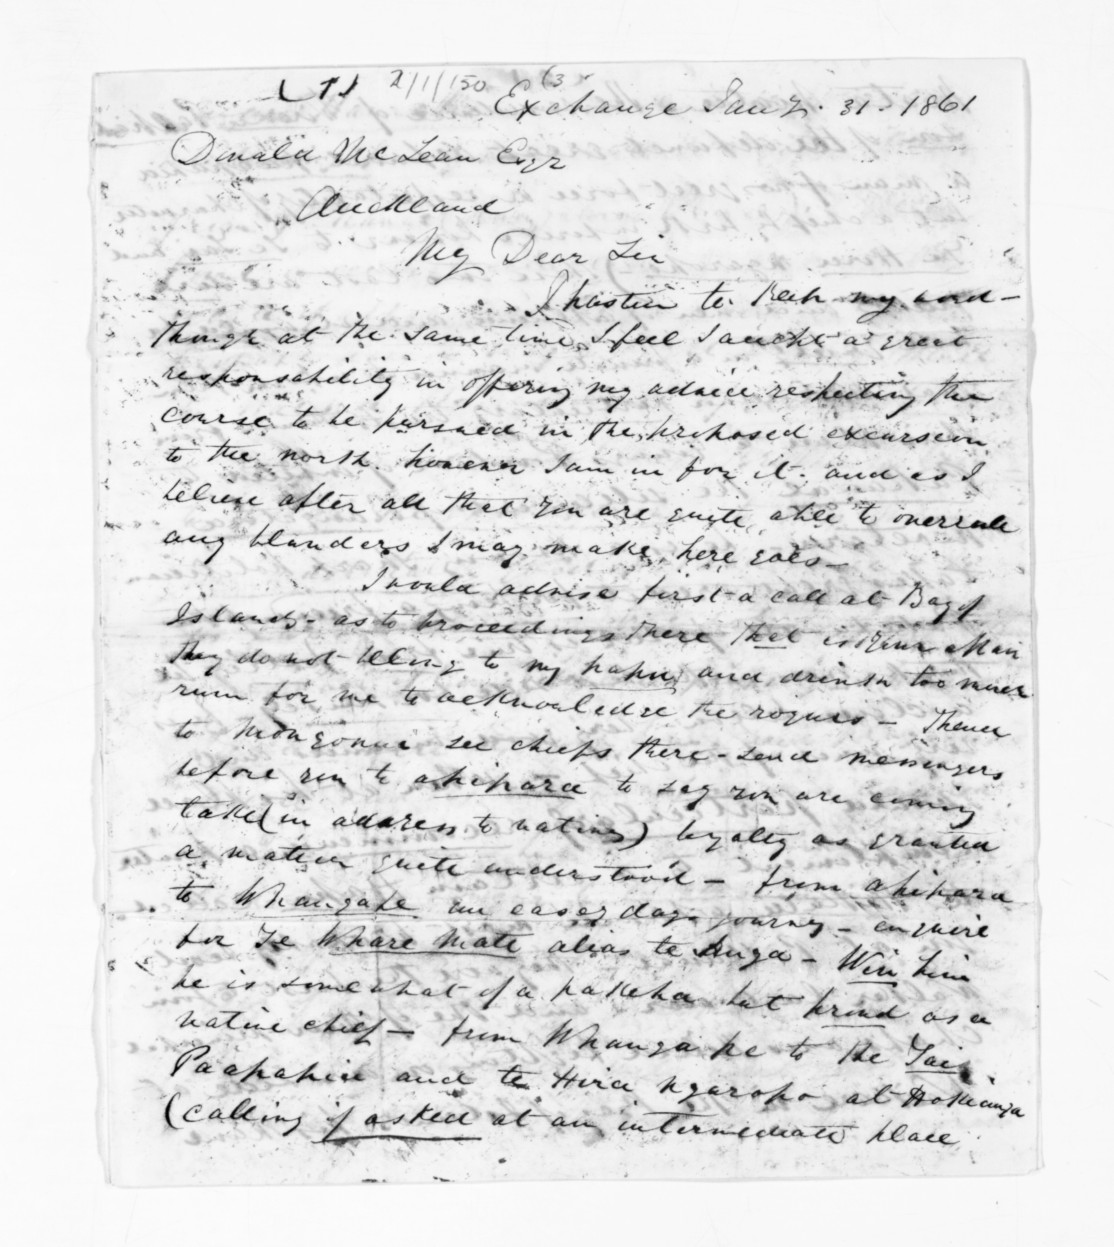 (1) 2/1/150 (3
Exchange Jany. 31. 1861
Donald McLean Esqr
Auckland
My Dear Sir
I hasten to keep my word -
though at the same time I feel I a great
responsability in offering my advice respecting the
course to be pursued in the proposed excursion
to the north. however I am in for it. and as I
believe after all that you are quite able to overrule
any blunders I may make, here goes -
I would advise first a call at Bay of
Islands - as to proceedings there that is your affair
they do not belong to my hapu and drink too much
rum for me to acknowledge the rogues - Thence
to Mongonui see chiefs there - send messengers
before you to ahipara to say you are coming
take (in address to natives) loyalty as granted
a matter quite understood - from ahipara
to Whangape an easy days journey - enquire
for Te Whare Mate alias te Huga - Win him
he is somewhat of a pakeha but proud as a
native chief - from Whanga pe to the Tai
Paapahia and te Hira ngaropo at Hokianga
(calling if asked at an intermediate place